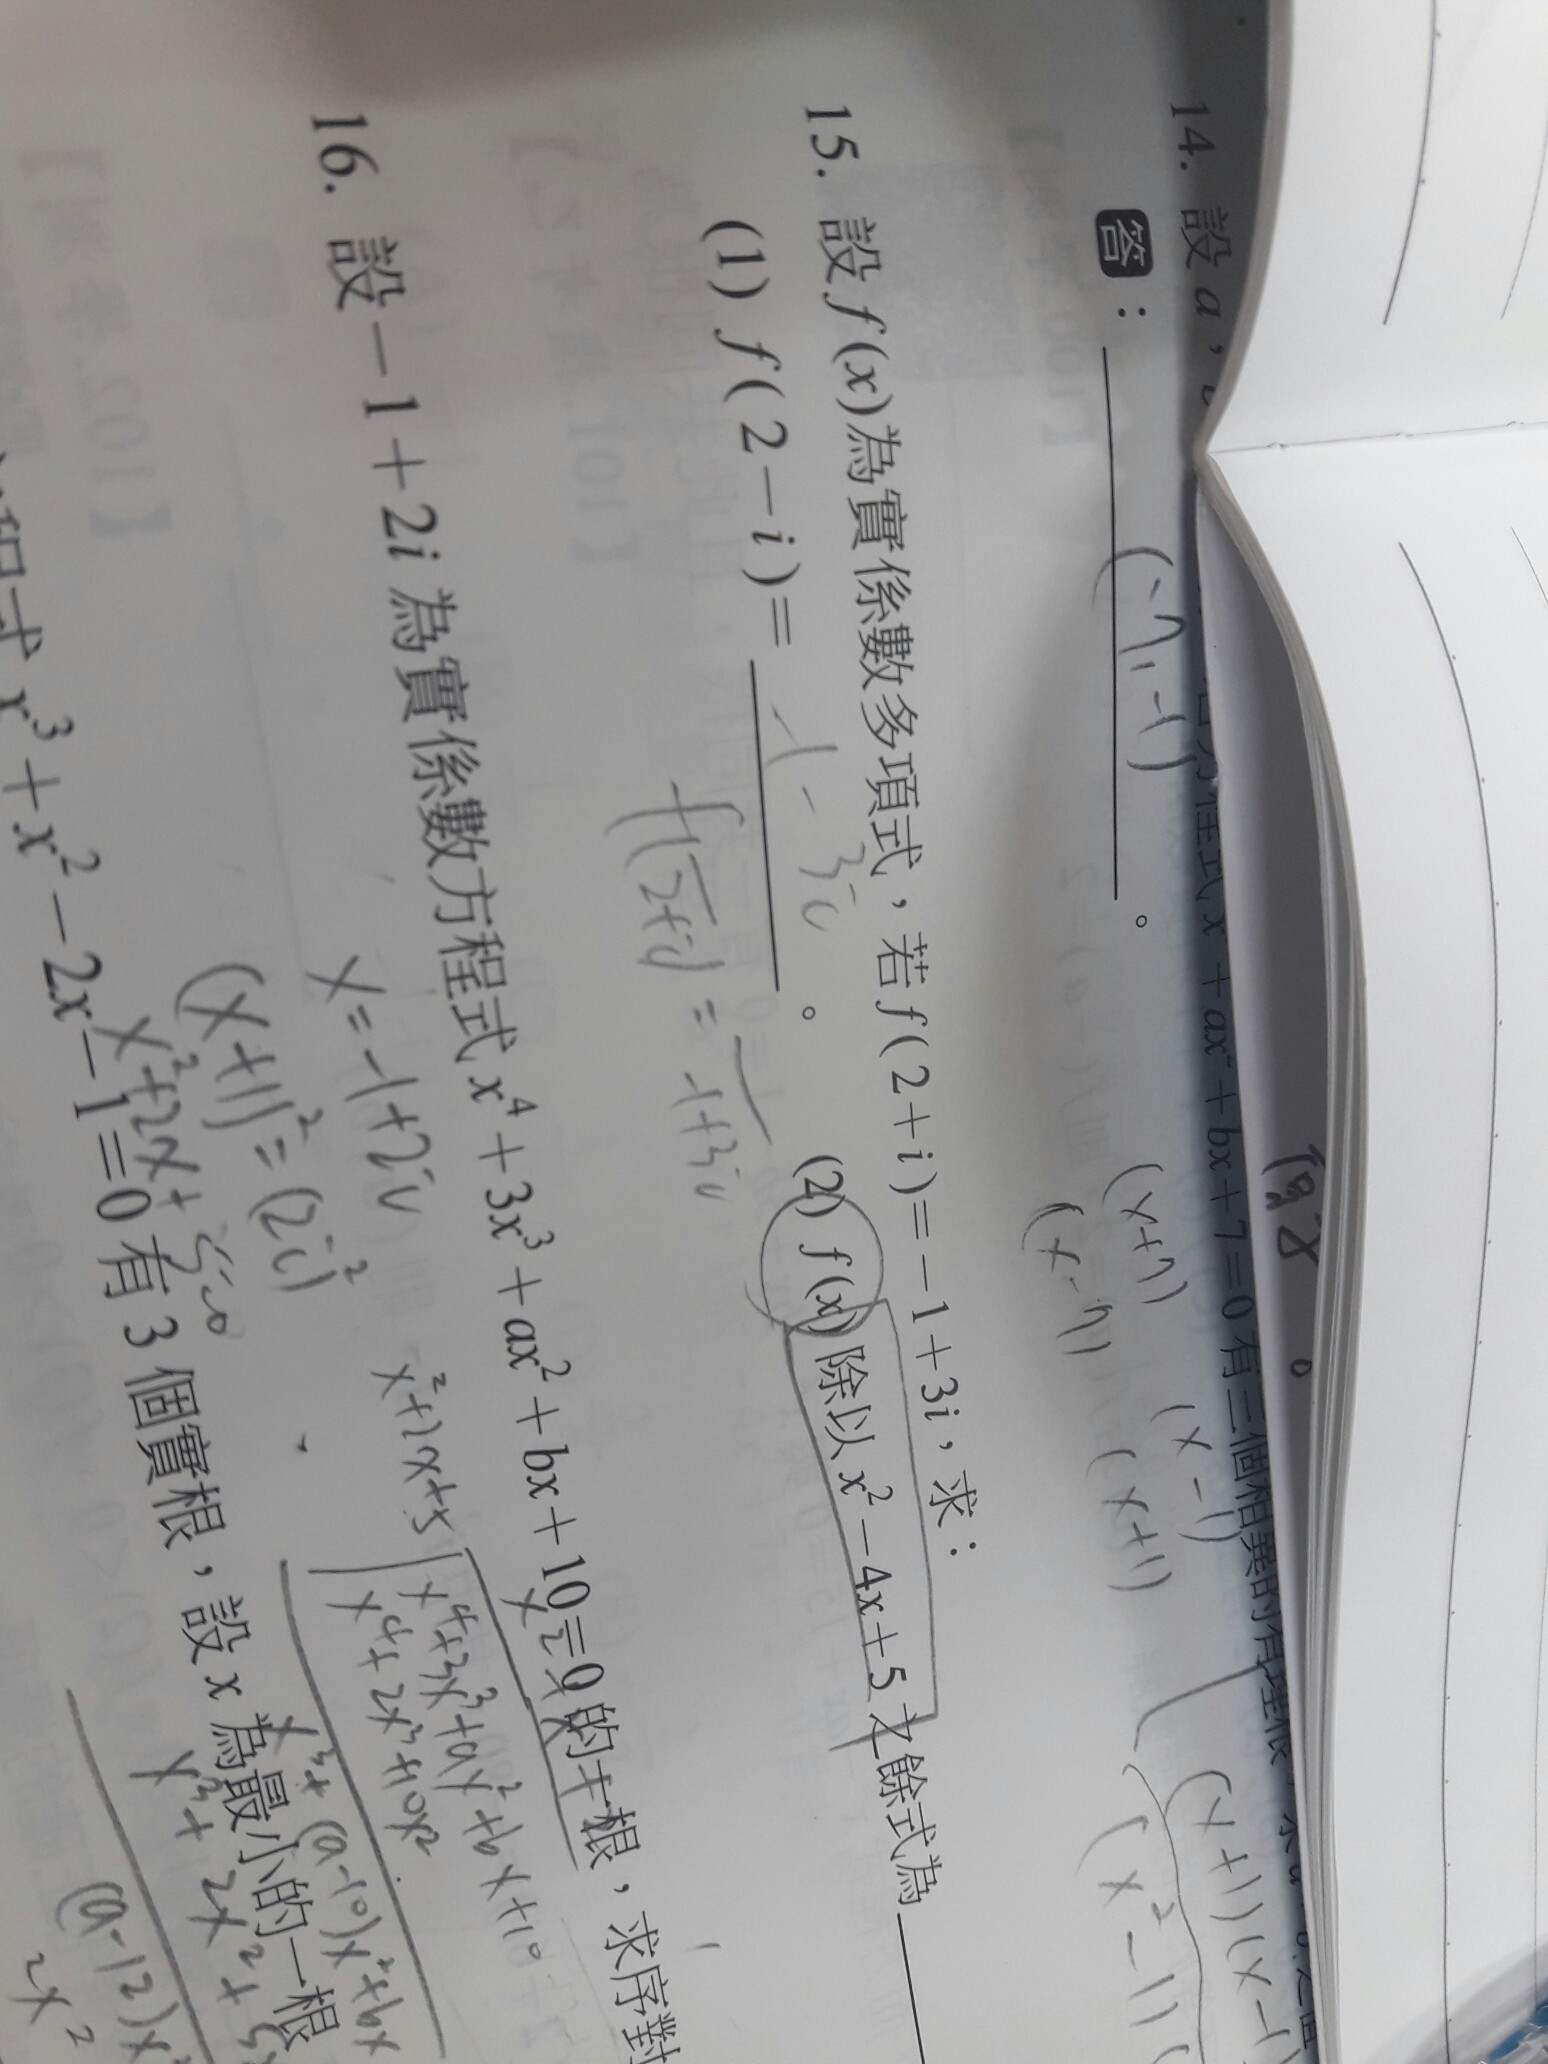 14. 設 a,
x + ax² + bx + 7 = 0 有三個相異的有理根
答:
(-7,-1)
(x+7) (x-1)
(x-7) (x+1)
(x+1)(x-1)
(x²-1)
15. 設 f(x)為實係數多項式,若 f(2+i)=-1+3i,求:
(1) f(2-i)= -1-3i 。 (2) f(x)除以 x²-4x+5 之餘式為
f(2+i) = -1+3i
16. 設-1+2i 為實係數方程式 x⁴+3x³+ax²+bx+10=0 的一根,求序對
x=-1+2i
(x+1)²=(2i)²
x²+2x+5=0
x²+2x+5
x⁴+3x³+ax²+bx+10
x⁴+2x³+10x²
x³+(a-10)x²+bx
x³+2x²+5
(a-12)x²
2x²
程式 x³+x²-2x-1=0 有 3 個實根,設 x 為最小的一根